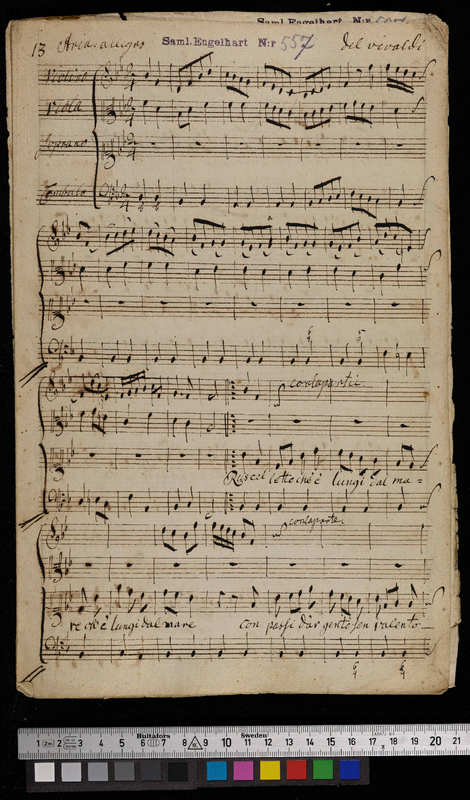 Saml. Engelhart N:r
13 Aria. allegro Saml. Engelhart N:r 557 del vivaldi
Violini
Viola
Soprano
6
5
colaparte.
Ruscelletto ch'è lungi dal ma=
colaparte.
re ch'è lungi dal mare con passi d'argento sen va lento
6 6
4 4
Hultafors Sweden
1 2m 2 3 4 5 6 7 8 9 10 11 12 13 14 15 16 17 18 19 20 21